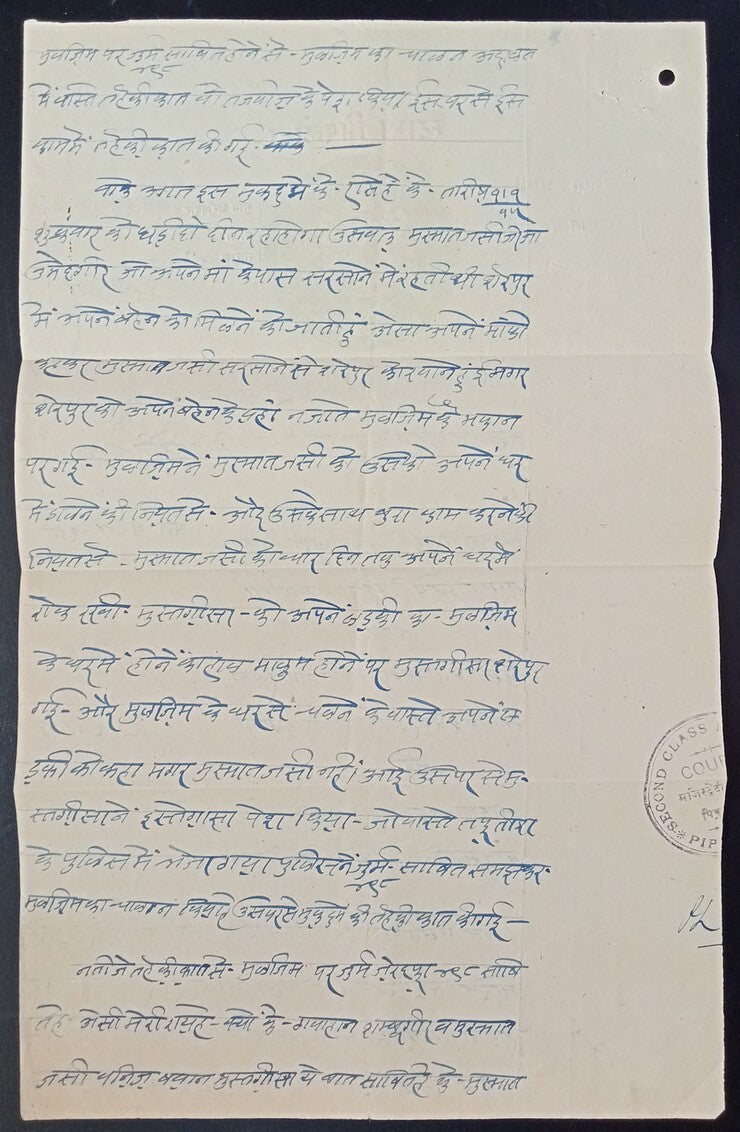 मुलज़िम पर जुर्म साबित होने से - मुलज़िम का चालान अदालत
४९८
में वास्ते तहेकीकात वो तजवीज़ के पेश किया इस पर से इस
काममें तहेकी़कात की गई -
वाके आत इस मुकद्दमें के - ऐसे हैं के - तारीख़ १।१
५५
शुक्रवार को घड़ी दो दीन रहा होगा उसवक्त मुस्मात जसी जोजा
उमेदगीर जो अपने माँ के पास सरसोनें में रहती थी शेरपुर
में अपनें बहेन को मिलनें को जाती हुं असा अपनें माँको
कहकर मुस्मात जसी सरसोनें से शेरपुर को रवाने हुई मगर
शेरपुर को अपनें बहेन के यहां न जाते मुलज़िम के मकान
पर गई - मुलज़िमनें मुस्मात जसी को उसको अपनें घर
में की नियतसे - और उसके साथ बुरा काम करने की
नियतसे - मुस्मात जसी को चार दिन तक अपनें घरमें
रोक रखी - मुस्तगी़सा - को अपनें लड़की का - मुलज़िम
के घरमें होनें का हाल मालुम होनें पर मुस्तगीसा शेरपुर
गई - और मुलज़िम के घरसे चलनें के वास्ते अपनें ल
ड़की को कहा मगर मुस्मात जसी नहीं आई उसपर से मु-
स्तगी़सानें इस्तेगा़सा पेश किया - जो वास्ते तफ़्तीश
के पुलिसमें भेजा गया पुलिसनें जुर्म साबित समझकर
४९८
मुलज़िमका चालान किया उसपरसे मुकद्दमें की तहेकी़कात की गई -
नतीजे तहेकी़कातसे - मुलज़िम पर जुर्म ज़ेरदफ़ा ४९८ साबि
तहै - असी मेरी रायहै - क्यों के - गवाहान गीर व मुस्मात
जसी व बयान मुस्तगी़सा ये बात साबित है के - मुस्मात
SECOND CLASS
COU
मजिस्ट्रेटी
पि
PIP